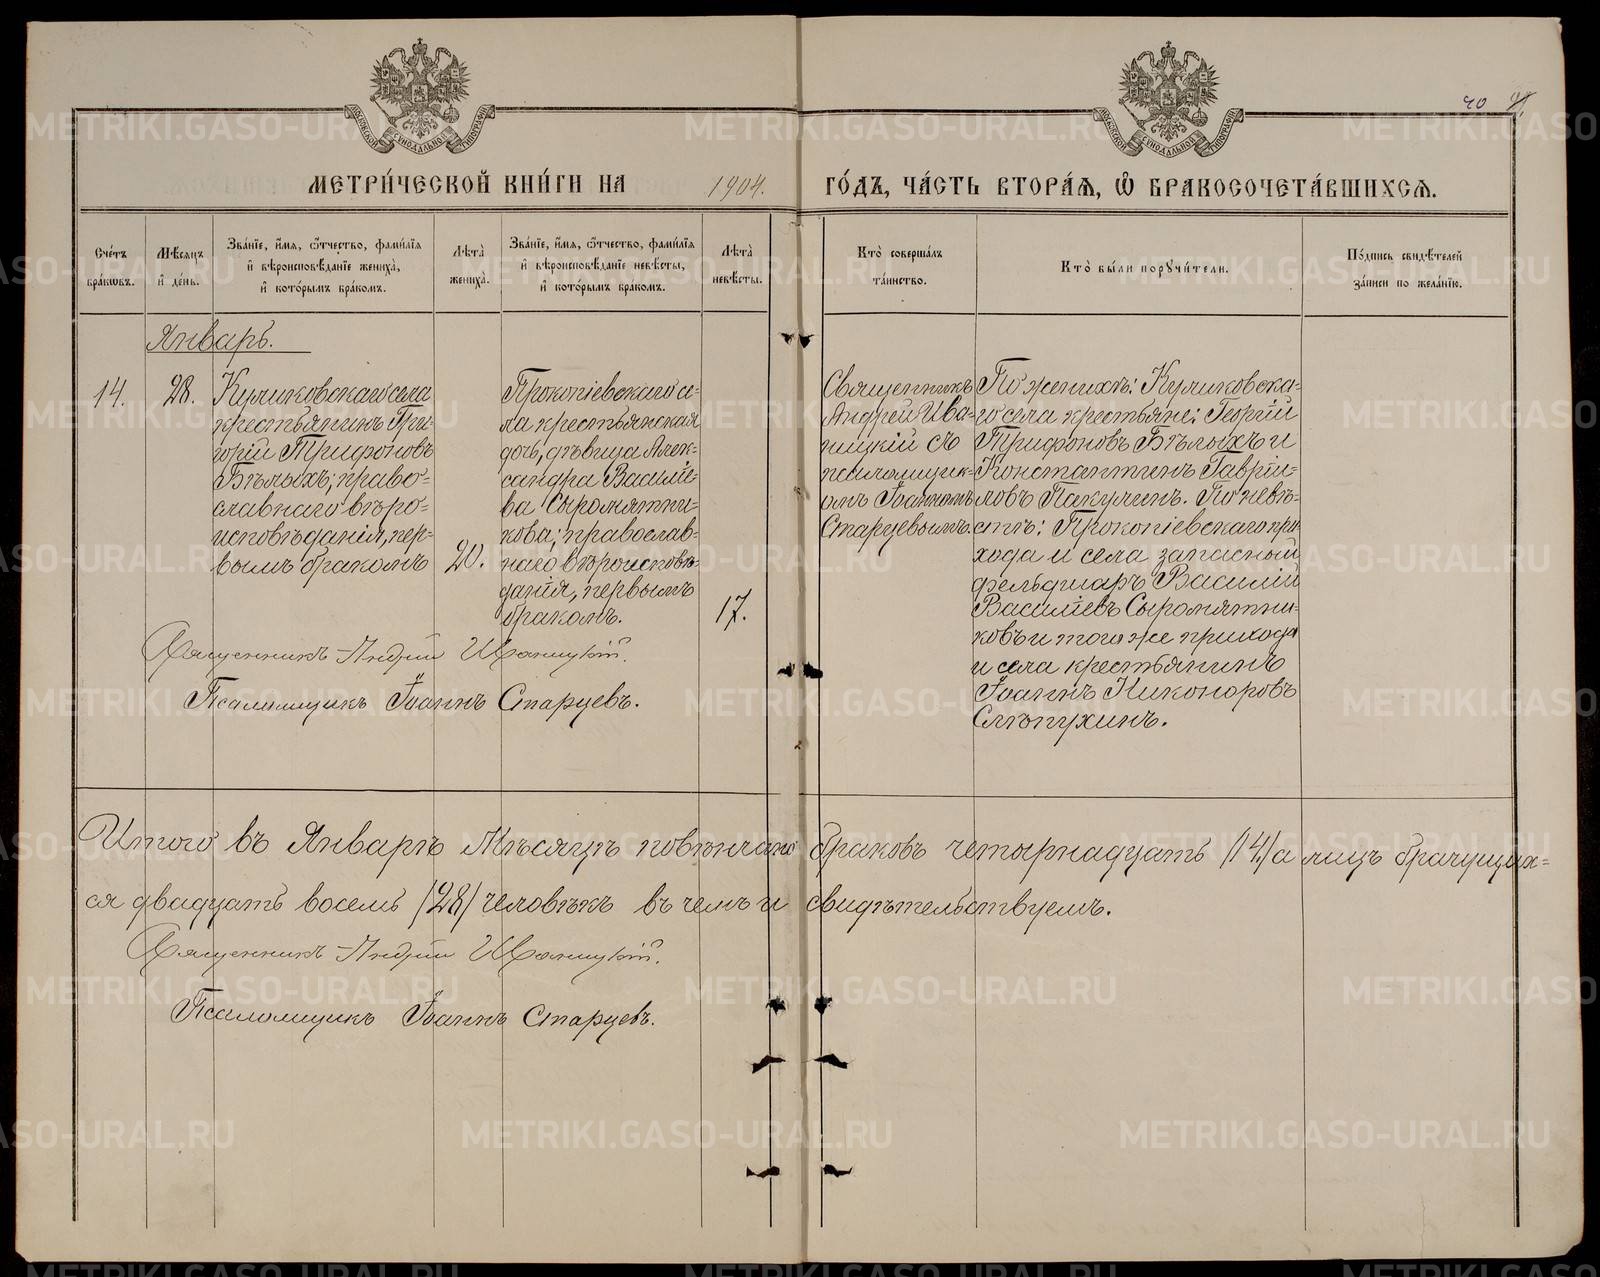 МОСКОВСКОЙ СУНОДАЛЬНОЙ ТИПОГРАФІИ
МОСКОВСКОЙ СУНОДАЛЬНОЙ ТИПОГРАФІИ
40
МЕТРИ́ЧЕСКОЙ КНИ́ГИ НА 1904. ГО́ДЪ, ЧА́СТЬ ВТОРА́Ѧ, Ѡ҆ БРАКОСОЧЕТА́ВШИХСѦ.
Сче́тъ бра́кѡвъ.
Мѣ́сѧцъ и҆ де́нь.
Зва́нїе, и҆́мѧ, ѻ҆́тчество, фами́лїѧ
и҆ вѣроисповѣ́данїе жениха̀,
и҆ кото́рымъ бра́комъ.
Лѣта̀ жениха̀.
Зва́нїе, и҆́мѧ, ѻ҆́тчество, фами́лїѧ
и҆ вѣроисповѣ́данїе невѣ́сты,
и҆ кото́рымъ бра́комъ.
Лѣта̀ невѣ́сты.
Кто̀ соверша́лъ та́инство.
Кто̀ бы́ли порꙋчи́тели.
По́дпись свидѣ́телей
за́писи по жела́нїю.
Январь.
14.
28.
Куликовскаго села
крестьянинъ Гри-
горій Трифоновъ
Бѣлыхъ; право-
славнаго вѣро-
исповѣданія, пер-
вымъ бракомъ
20.
Прокопіевскаго се-
ла крестьянская
дочь, дѣвица Алек-
сандра Василіе-
ва Сыромятни-
кова; православ-
наго вѣроисповѣ-
данія, первымъ
бракомъ.
17.
Священникъ
Андрей Ива-
ницкій съ
псаломщик-
омъ Іоанномъ
Старцевымъ.
По женихѣ: Куликовска-
го села крестьяне: Георгій
Трифоновъ Бѣлыхъ и
Константинъ Гаврии-
ловъ Пакулинъ. По невѣ-
стѣ: Прокопіевскаго при-
хода и села запасный
фельдшаръ Василій
Василіевъ Сыромятни-
ковъ и того же прихода
и села крестьянинъ
Іоаннъ Никоноровъ
Слѣпухинъ.
Священникъ Андрей Иваницкій.
Псаломщикъ Іоаннъ Старцевъ.
Итого въ Январѣ Мѣсяцѣ повѣнчано браковъ четырнадцать /14/ а лицъ брачущих-
ся двадцать восемь /28/ человѣкъ въ чемъ и свидѣтельствуемъ.
Священникъ Андрей Иваницкій.
Псаломщикъ Іоаннъ Старцевъ.
METRIKI.GASO-URAL.RU